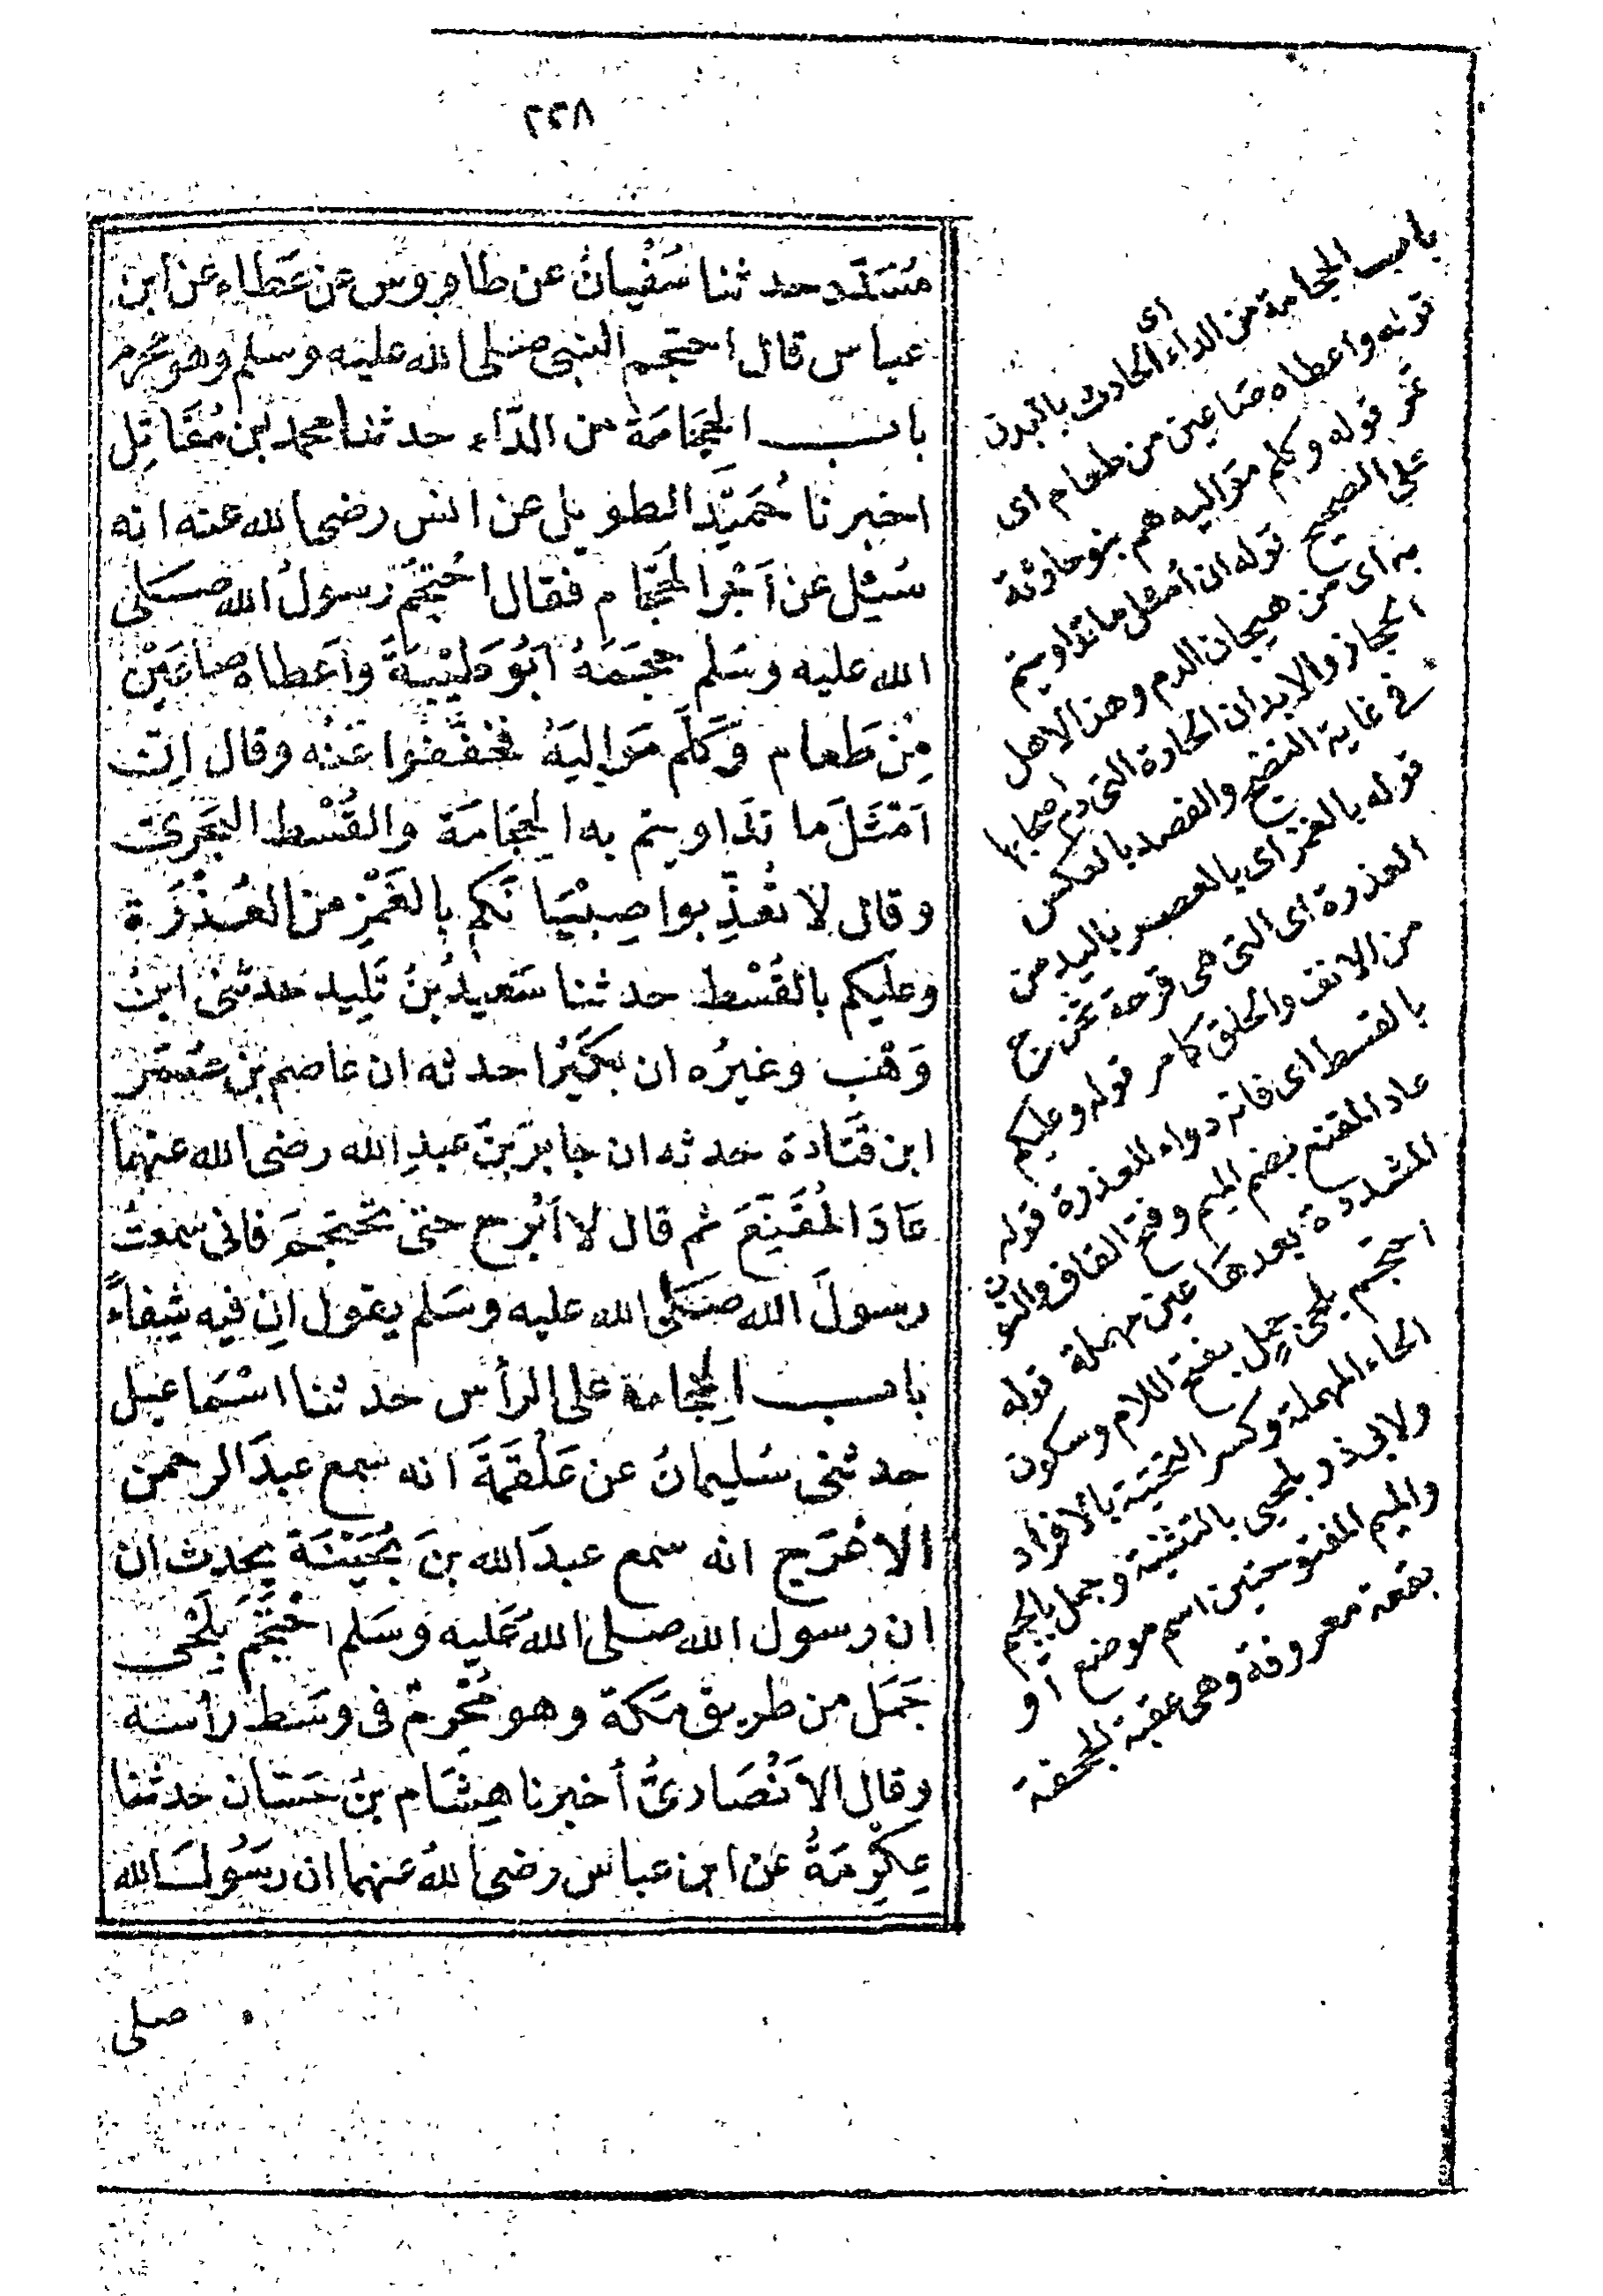 ٢٢٨
مُسَدَّد حدثنا سُفْيانُ عن طاووس عن عَطاءٍ عن ابن
عباس قال احتجم النبى صلى الله عليه وسلم وهو محرم
باب الحِجَامَة من الدَّاء حدثنا محمد بن مُقَاتِل
اخبرنا حُمَيْدٌ الطويل عن انس رضى الله عنه انه
سُئِل عن اَجْرِ الحَجَّام فقال احْتَجَمَ رسولُ الله صَلى
الله عليه وسَلم حجَمَهُ اَبُو طَيْبَةَ واَعطاه صاعَيْن
مِنْ طَعام وَكَلَّم مَوَالِيَهُ فَخفَّفُوا عَنْه وقال اِنَّ
اَمْثَلَ ما تَدَاويتم به الحِجَامَة والقُسْط البَحْرىّ
وقال لا تُعَذِّبوا صِبْيَانَكم بِالغَمْزِ من العُذْرَة
وعليكم بالقُسْط حدثنا سَعيدُ بنُ تَلِيد حدثنى ابنُ
وَهْب وغيرُه ان بُكَيْرًا حدثه ان عاصم بن عُمَرَ
ابن قَتَادة حدثه ان جابرَ بنَ عبدِ الله رضى الله عنهما
عَادَ المُقَنَّعَ ثم قال لا اَبْرح حتى تَحتجِمَ فانى سمعتُ
رسولَ الله صَلى الله عليه وسَلم يقول اِن فيه شِفاءً
باب الحِجامة على الرأس حدثنا اسْمَاعيل
حدثنى سُليمانُ عن عَلْقَمَةَ انه سمع عبدَ الرحمن
الاعْرَج انه سمع عبدَ الله بنَ بُحَيْنَةَ يحدث ان
ان رسول الله صلى الله عَليه وسَلم احْتَجَمَ بِلَحْى
جَمَل من طريق مَكة وهو مُحْرِمٌ فى وسَط رأسه
وقال الاَنْصَارىُّ أخبرنا هِشَام بنُ حَسَّان حدثنا
عِكْرِمَةُ عن ابن عباس رضى اللهُ عنهما ان رَسُولَ الله
صلى
باب الحجامة من الداء اى الحادث بالبدن
قوله واعطاه صاعين من طعام اى
تمر قوله وكلم مواليه هم بنو حارثة
على الصحيح قوله ان أمثل ما تداويتم
به اى من هيجان الدم وهذا لاهل
الحجاز والابدان الحادة التى دم اصحابها
فى غاية النضج والفصد بالعكس
قوله بالغمز اى بالعصر باليد من
العذرة اى التى هى قرحة تخرج
من الانف والحلق كما مر قوله وعليكم
بالقسط اى فانه دواء للعذرة قوله
عاد المقنع بضم الميم وفتح القاف والنون
المشددة بعدها عين مهملة قوله
احتجم بلحى جمل بفتح اللام وسكون
الحاء المهملة وكسر التحتية بالافراد
ولابى ذر بلحيى بالتثنية وجمل بالجيم
والميم المفتوحتين اسم موضع او
بقعة معروفة وهى عقبة الجحفة